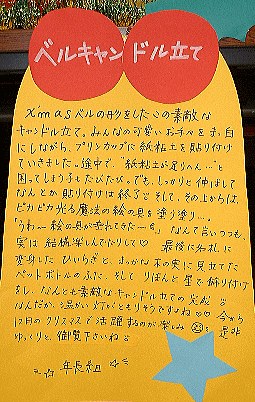 ベルキャンドル立て
X'masベルの形をしたこの素敵な
キャンドル立て。みんなの可愛いお手々をまっ白
にしながら、プリンカップに紙粘土を貼り付け
ていきました。途中で、"紙粘土が足りへん…"と
困ってしまう子もたびたび。でも、しっかりと伸ばして
なんとか貼り付けは終了 そして、その上からは
ピカピカ光る魔法の絵の具を塗り塗り…。
「うわ〜 絵の具が垂れてきたー」なんて言いつつも、
実は結構楽しんでたりして♡ 最後に名札に
変身したひいらぎと、まっかな木の実に見立てた
ペットボトルのふた、そしてりぼんと星で飾り付け
をし、なんとも素敵なキャンドル立ての完成
なんだか、心温かい灯がともりそうですよね♡♡ 今から
12月のクリスマスで活躍するのが楽しみ 是非
ゆっくりと御覧下さいね
☆☆ 年長組 ☆☆